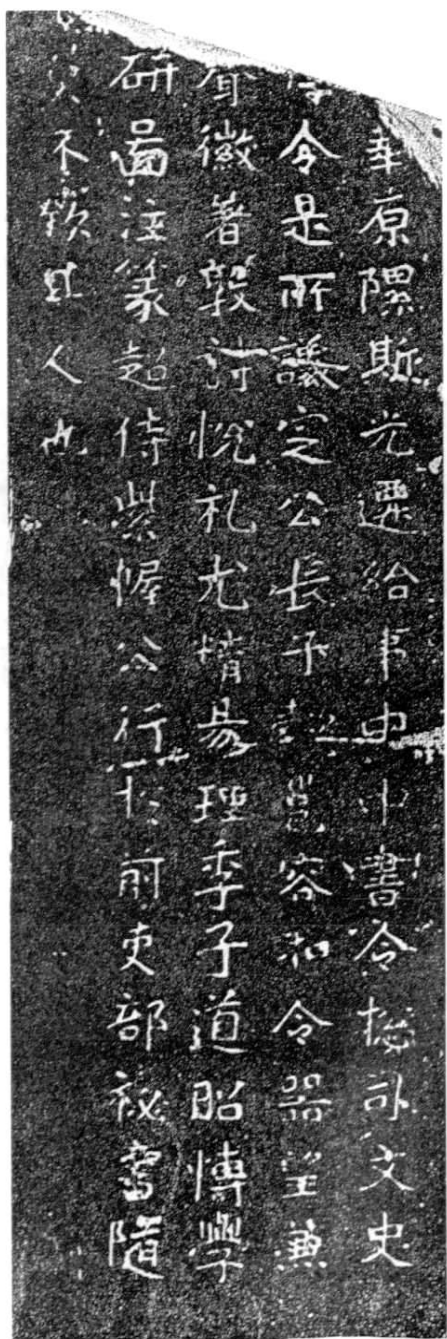 華原隰斯光遷給事中中書令揔司文史
律令是所議定公長子懿邕容和令器望兼
徽著敦詩悅礼尤精易理季子道昭博學
研圖注篆超侍紫幄公行於前吏部秘書隨
莫不欽其人也